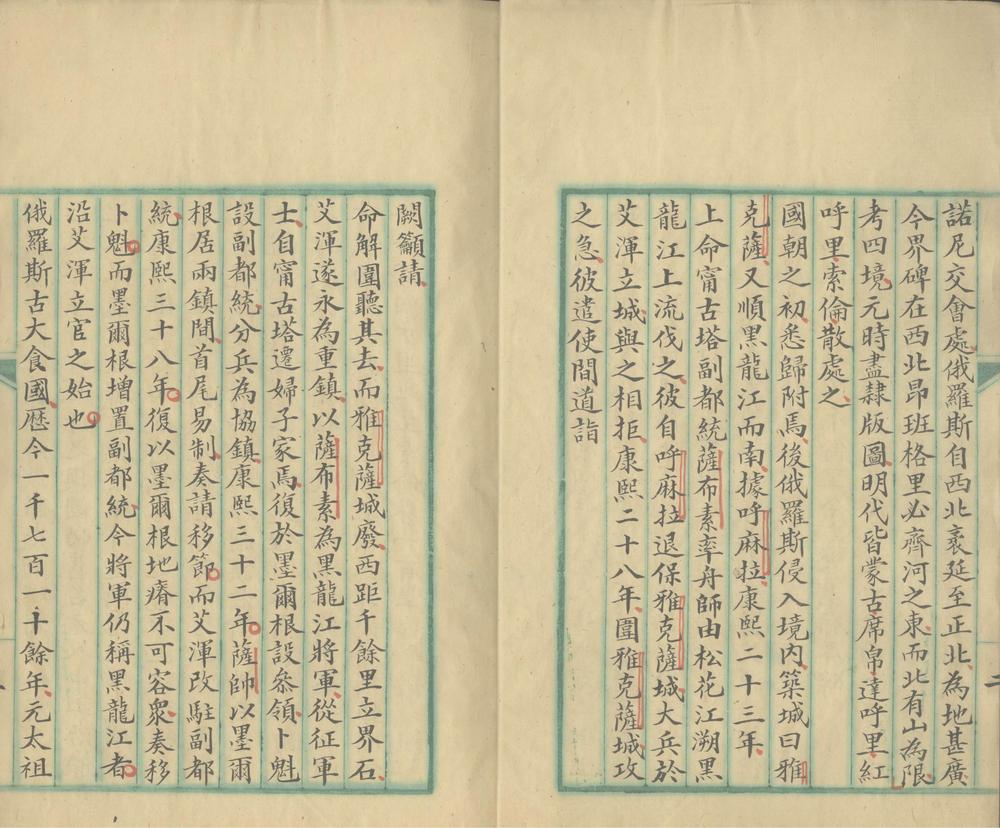 諾尼交會處俄羅斯自西北袤延至正北為地甚廣
今界碑在西北昂班格里必齊河之東而北有山為限
考四境元時盡隸版圖明代皆蒙古席帛達呼里紅
呼里索倫散處之
國朝之初悉歸附焉後俄羅斯侵入境內築城曰雅
克薩又順黑龍江而南據呼麻拉康熙二十三年
上命甯古塔副都統薩布素率舟師由松花江溯黑
龍江上流伐之彼自呼麻拉退保雅克薩城大兵於
艾渾立城與之相拒康熙二十八年圍雅克薩城攻
之急彼遣使間道詣
闕籲請
命解圍聽其去而雅克薩城廢西距千餘里立界石
艾渾遂永為重鎮以薩布素為黑龍江將軍從征軍
士自甯古塔遷婦子家焉復於墨爾根設叅領卜魁
設副都統分兵為協鎮康熙三十二年薩帥以墨爾
根居兩鎮間首尾易制奏請移節而艾渾改駐副都
統康熙三十八年復以墨爾根地瘠不可容衆奏移
卜魁而墨爾根增置副都統今將軍仍稱黑龍江者
沿艾渾立官之始也
俄羅斯古大食國歷今一千七百一十餘年元太祖
二